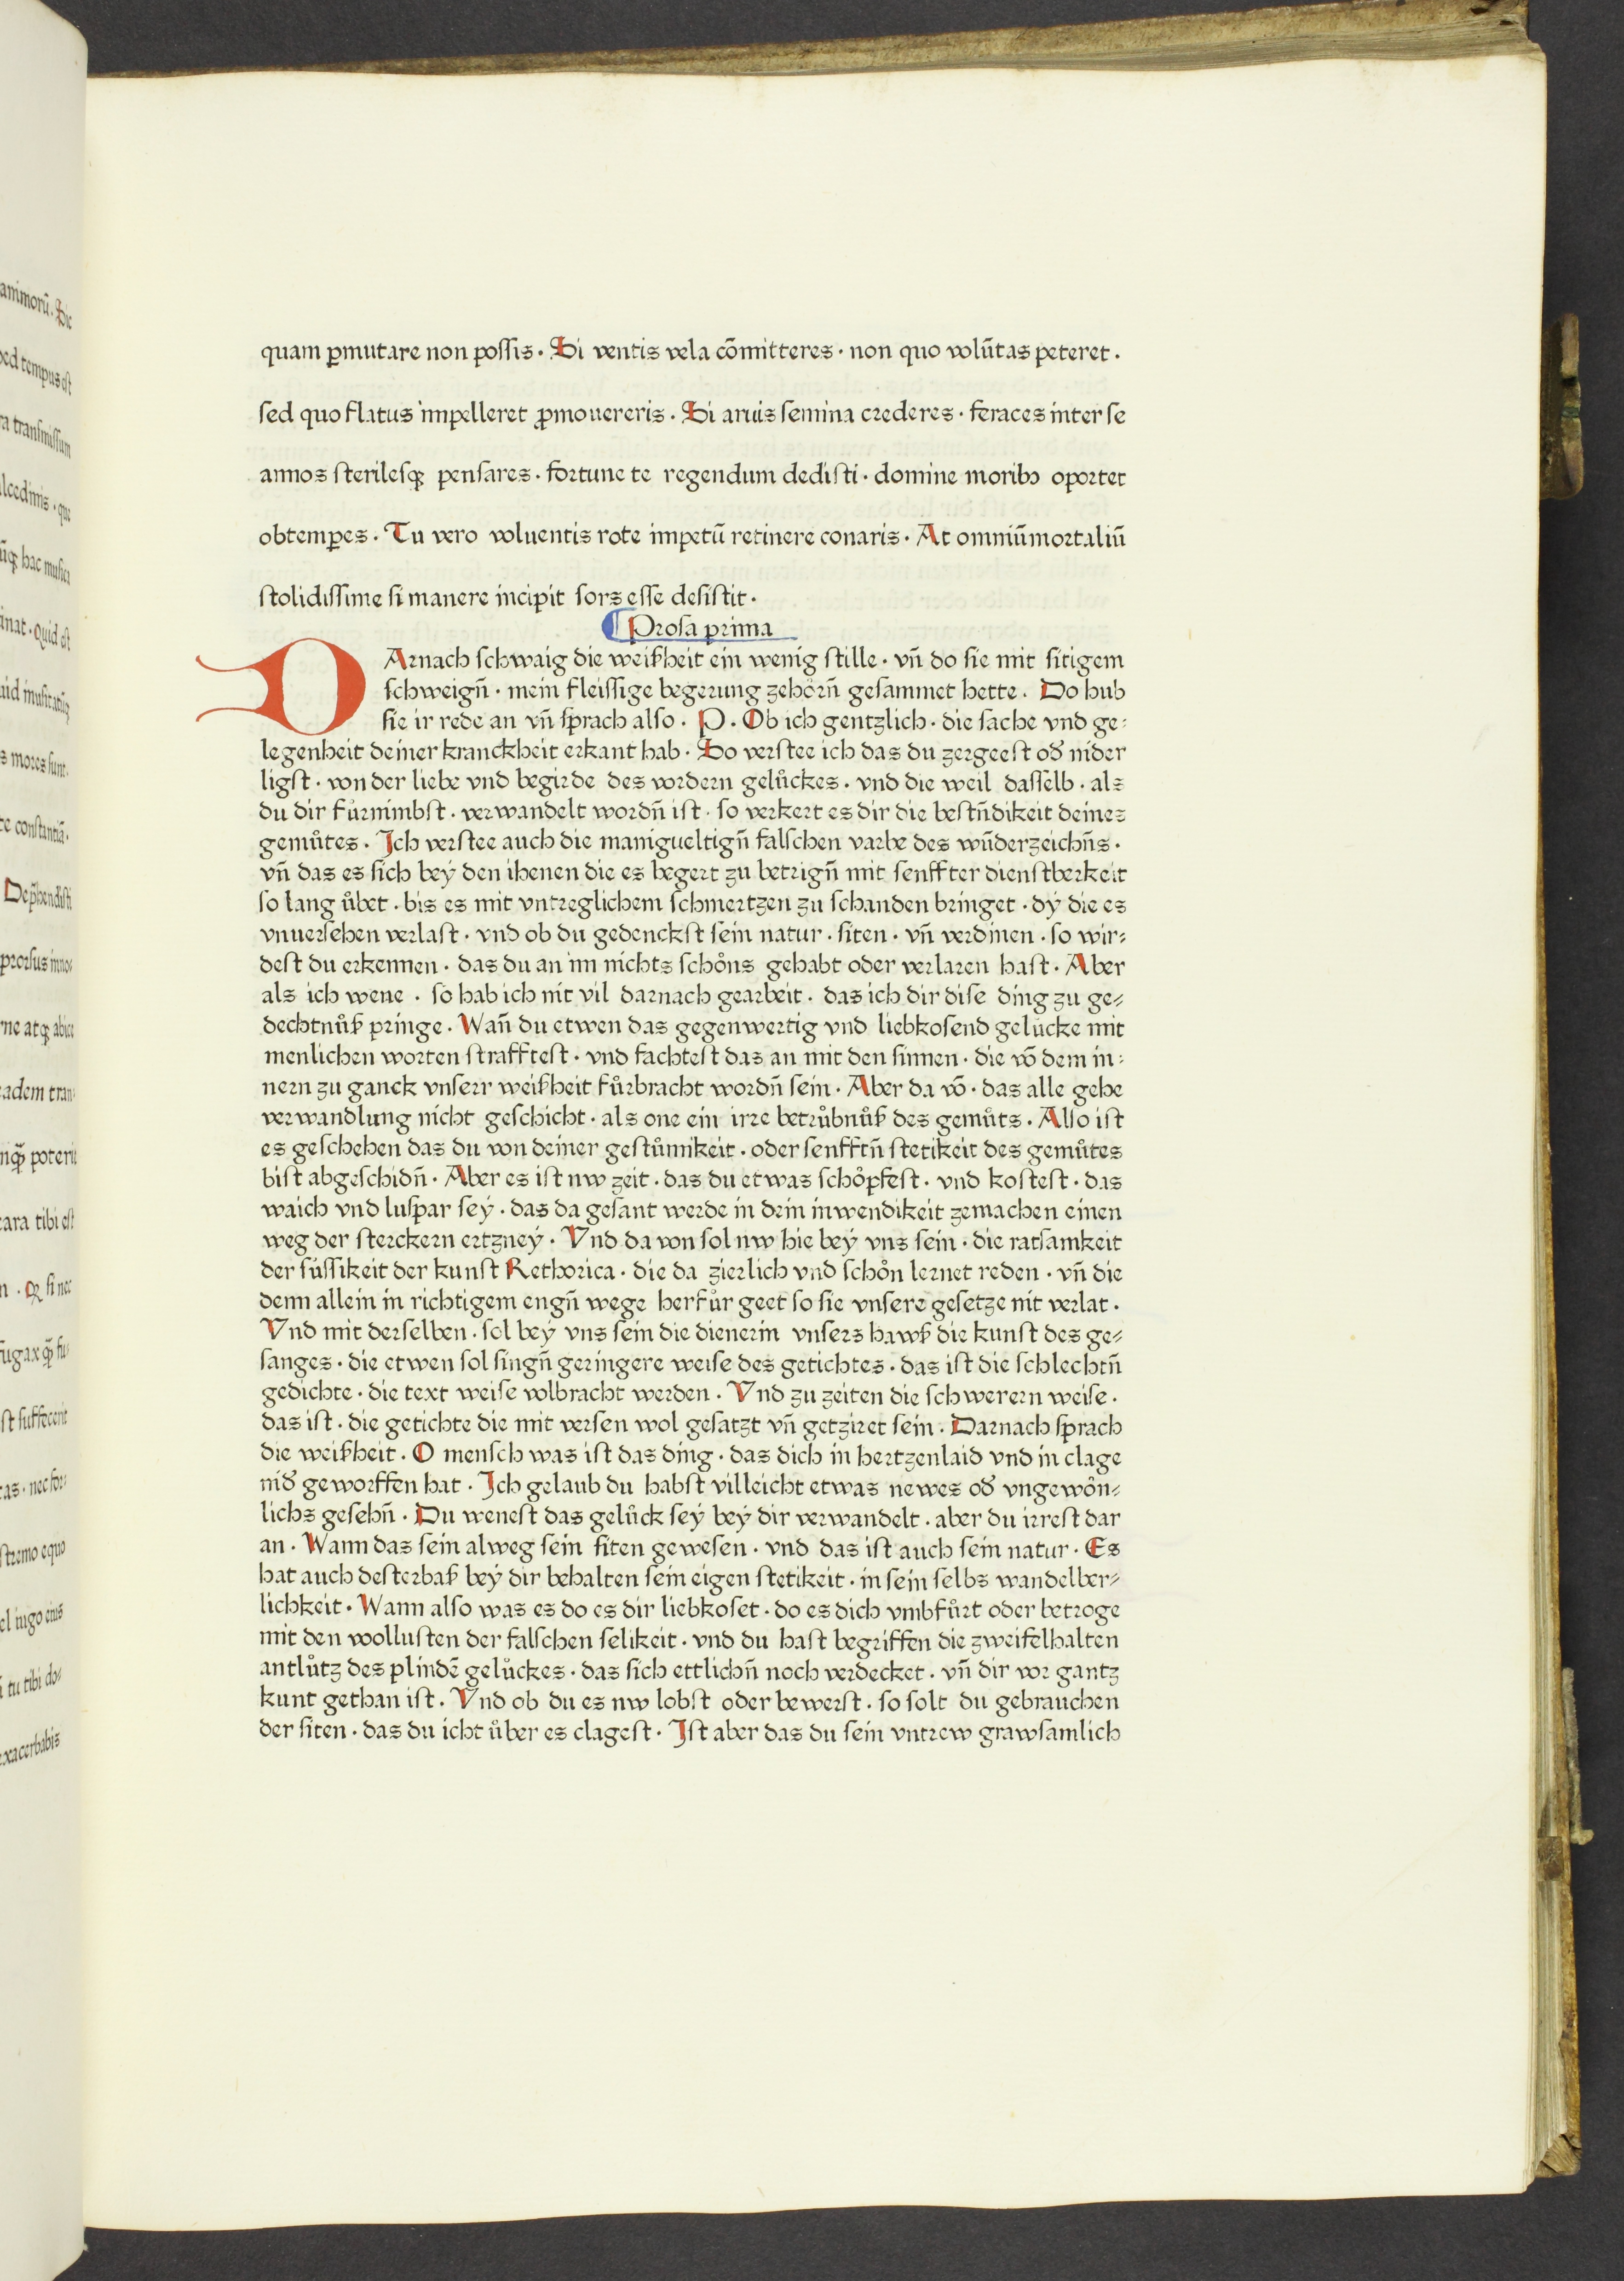 quam ꝑmutare non possis · Si ventis vela cōmitteres · non quo volūtas peteret ·
sed quo flatus impelleret ꝓmouereris · Si aruis semina crederes · feraces inter se
annos sterilesqꝫ pensares · fortune te regendum dedisti · domine moribꝰ oportet
obtemꝑes · Tu vero voluentis rote impetū retinere conaris · At omniū mortaliū
stolidissime si manere incipit fors esse desistit ·
Prosa prima
DArnach schwaig die weißheit ein wenig stille · vn̄ do sie mit sitigem
schweign̄ · mein fleissige begerung zehoͤrn̄ gesammet hette · Do hub
sie ir rede an vn̄ sprach also · P · Ob ich gentzlich · die sache vnd ge⸗
legenheit deiner kranckheit erkant hab · So verstee ich das du zergeest od̄ nider
ligst · von der liebe vnd begirde des vordern geluͤckes · vnd die weil dasselb · als
du dir fuͤrnimbst · verwandelt wordn̄ ist · so verkert es dir die bestn̄dikeit deines
gemuͤtes · Ich verstee auch die manigueltign̄ falschen varbe des wūderzeichn̄s ·
vn̄ das es sich bey den ihenen die es begert zu betrign̄ mit senffter dienstberkeit
so lang uͤbet · bis es mit vntreglichem schmertzen zu schanden bringet · dy die es
vnuersehen verlast · vnd ob du gedenckst sein natur · siten · vn̄ verdinen · so wir⸗
dest du erkennen · das du an im nichts schoͤns gehabt oder verlaren hast · Aber
als ich wene · so hab ich nit vil darnach gearbeit · das ich dir dise ding zu ge⸗
dechtnuͤß pringe · Wan̄ du etwen das gegenwertig vnd liebkosend geluͤcke mit
menlichen worten strafftest · vnd fachtest das an mit den sinnen · die vō dem in⸗
nern zu ganck vnserr weißheit fuͤrbracht wordn̄ sein · Aber da vō · das alle gehe
verwandlung nicht geschicht · als one ein irre betruͤbnuͤß des gemuͤts · Also ist
es geschehen das du von deiner gestuͤmikeit · oder senfftn̄ stetikeit des gemuͤtes
bist abgeschidn̄ · Aber es ist nw zeit · das du etwas schoͤpfest · vnd kostest · das
waich vnd luspar sey · das da gesant werde in dein inwendikeit zemachen einen
weg der sterckern ertzney · Vnd da von sol nw hie bey vns sein · die ratsamkeit
der suͤssikeit der kunst Rethorica · die da zierlich vnd schoͤn lernet reden · vn̄ die
denn allein in richtigem engn̄ wege herfuͤr geet so sie vnsere gesetze nit verlat ·
Vnd mit derselben · sol bey vns sein die dienerin vnsers hawß die kunst des ge⸗
sanges · die etwen sol singn̄ geringere weise des getichtes · das ist die schlechtn̄
gedichte · die text weise volbracht werden · Vnd zu zeiten die schwerern weise ·
das ist · die getichte die mit versen wol gesatzt vn̄ getziret sein · Darnach sprach
die weißheit · O mensch was ist das ding · das dich in hertzenlaid vnd in clage
nid̄ geworffen hat · Ich gelaub du habst villeicht etwas newes od̄ vngewoͤn⸗
lichs gesehn̄ · Du wenest das geluͤck sey bey dir verwandelt · aber du irrest dar
an · Wann das sein alweg sein siten gewesen · vnd das ist auch sein natur · Es
hat auch desterbaß bey dir behalten sein eigen stetikeit · in sein selbs wandelber⸗
lichkeit · Wann also was es do es dir liebkoset · do es dich vmbfuͤrt oder betroge
mit den wollusten der falschen selikeit · vnd du hast begriffen die zweifelhalten
antluͤtz des plindē geluͤckes · das sich ettlichn̄ noch verdecket · vn̄ dir vor gantz
kunt gethan ist · Vnd ob du es nw lobst oder bewerst · so solt du gebrauchen
der siten · das du icht uͤber es clagest · Ist aber das du sein vntrew grawsamlich